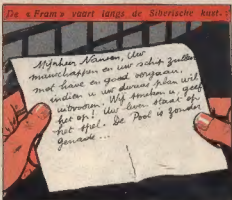 De « Fram » vaart langs de Siberische kust.
Mijnheer Nansen, Uw
manschappen en uw schip zullen
met have en goed vergaan,
indien u uw dwaas plan wil
uitvoeren. Wij smeken u, geef
het op! Uw leven staat op
het spel. De Pool is zonder
genade...